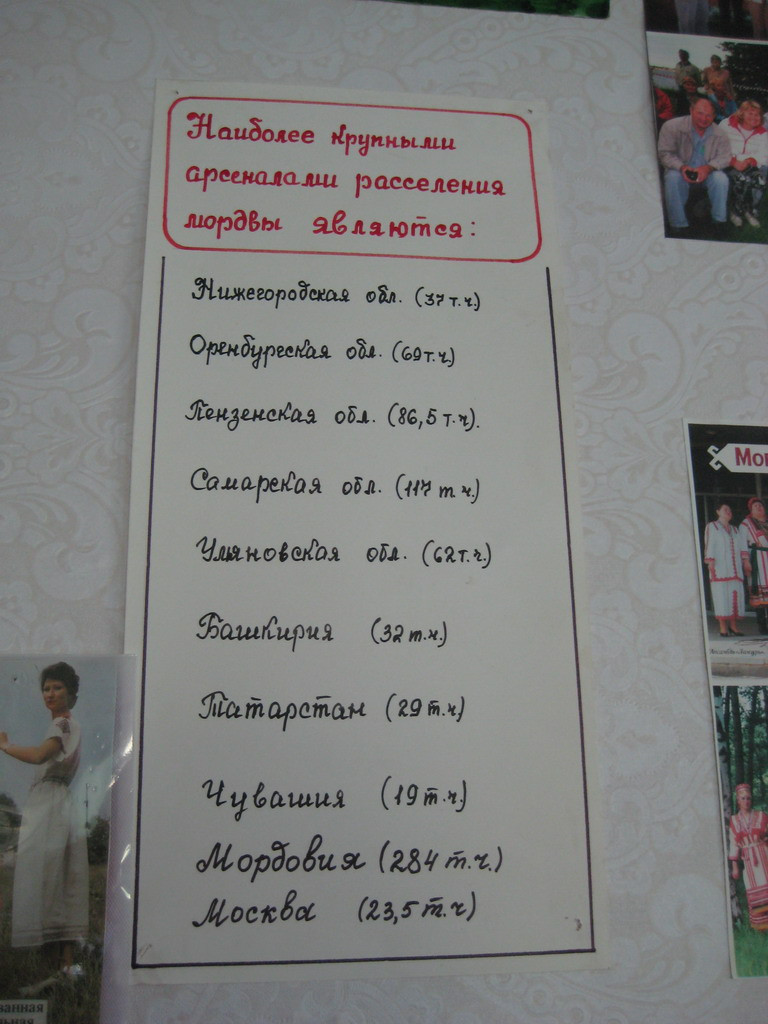 Наиболее крупными
арсеналами расселения
мордвы являются:
Нижегородская обл. (37 т.ч.)
Оренбургская обл. (69 т.ч.)
Пензенская обл. (86,5 т.ч).
Самарская обл. (117 т.ч.)
Ульяновская обл. (62 т.ч.)
Башкирия (32 т.ч.)
Татарстан (29 т.ч.)
Чувашия (19 т.ч.)
Мордовия (284 т.ч.)
Москва (23,5 т.ч)